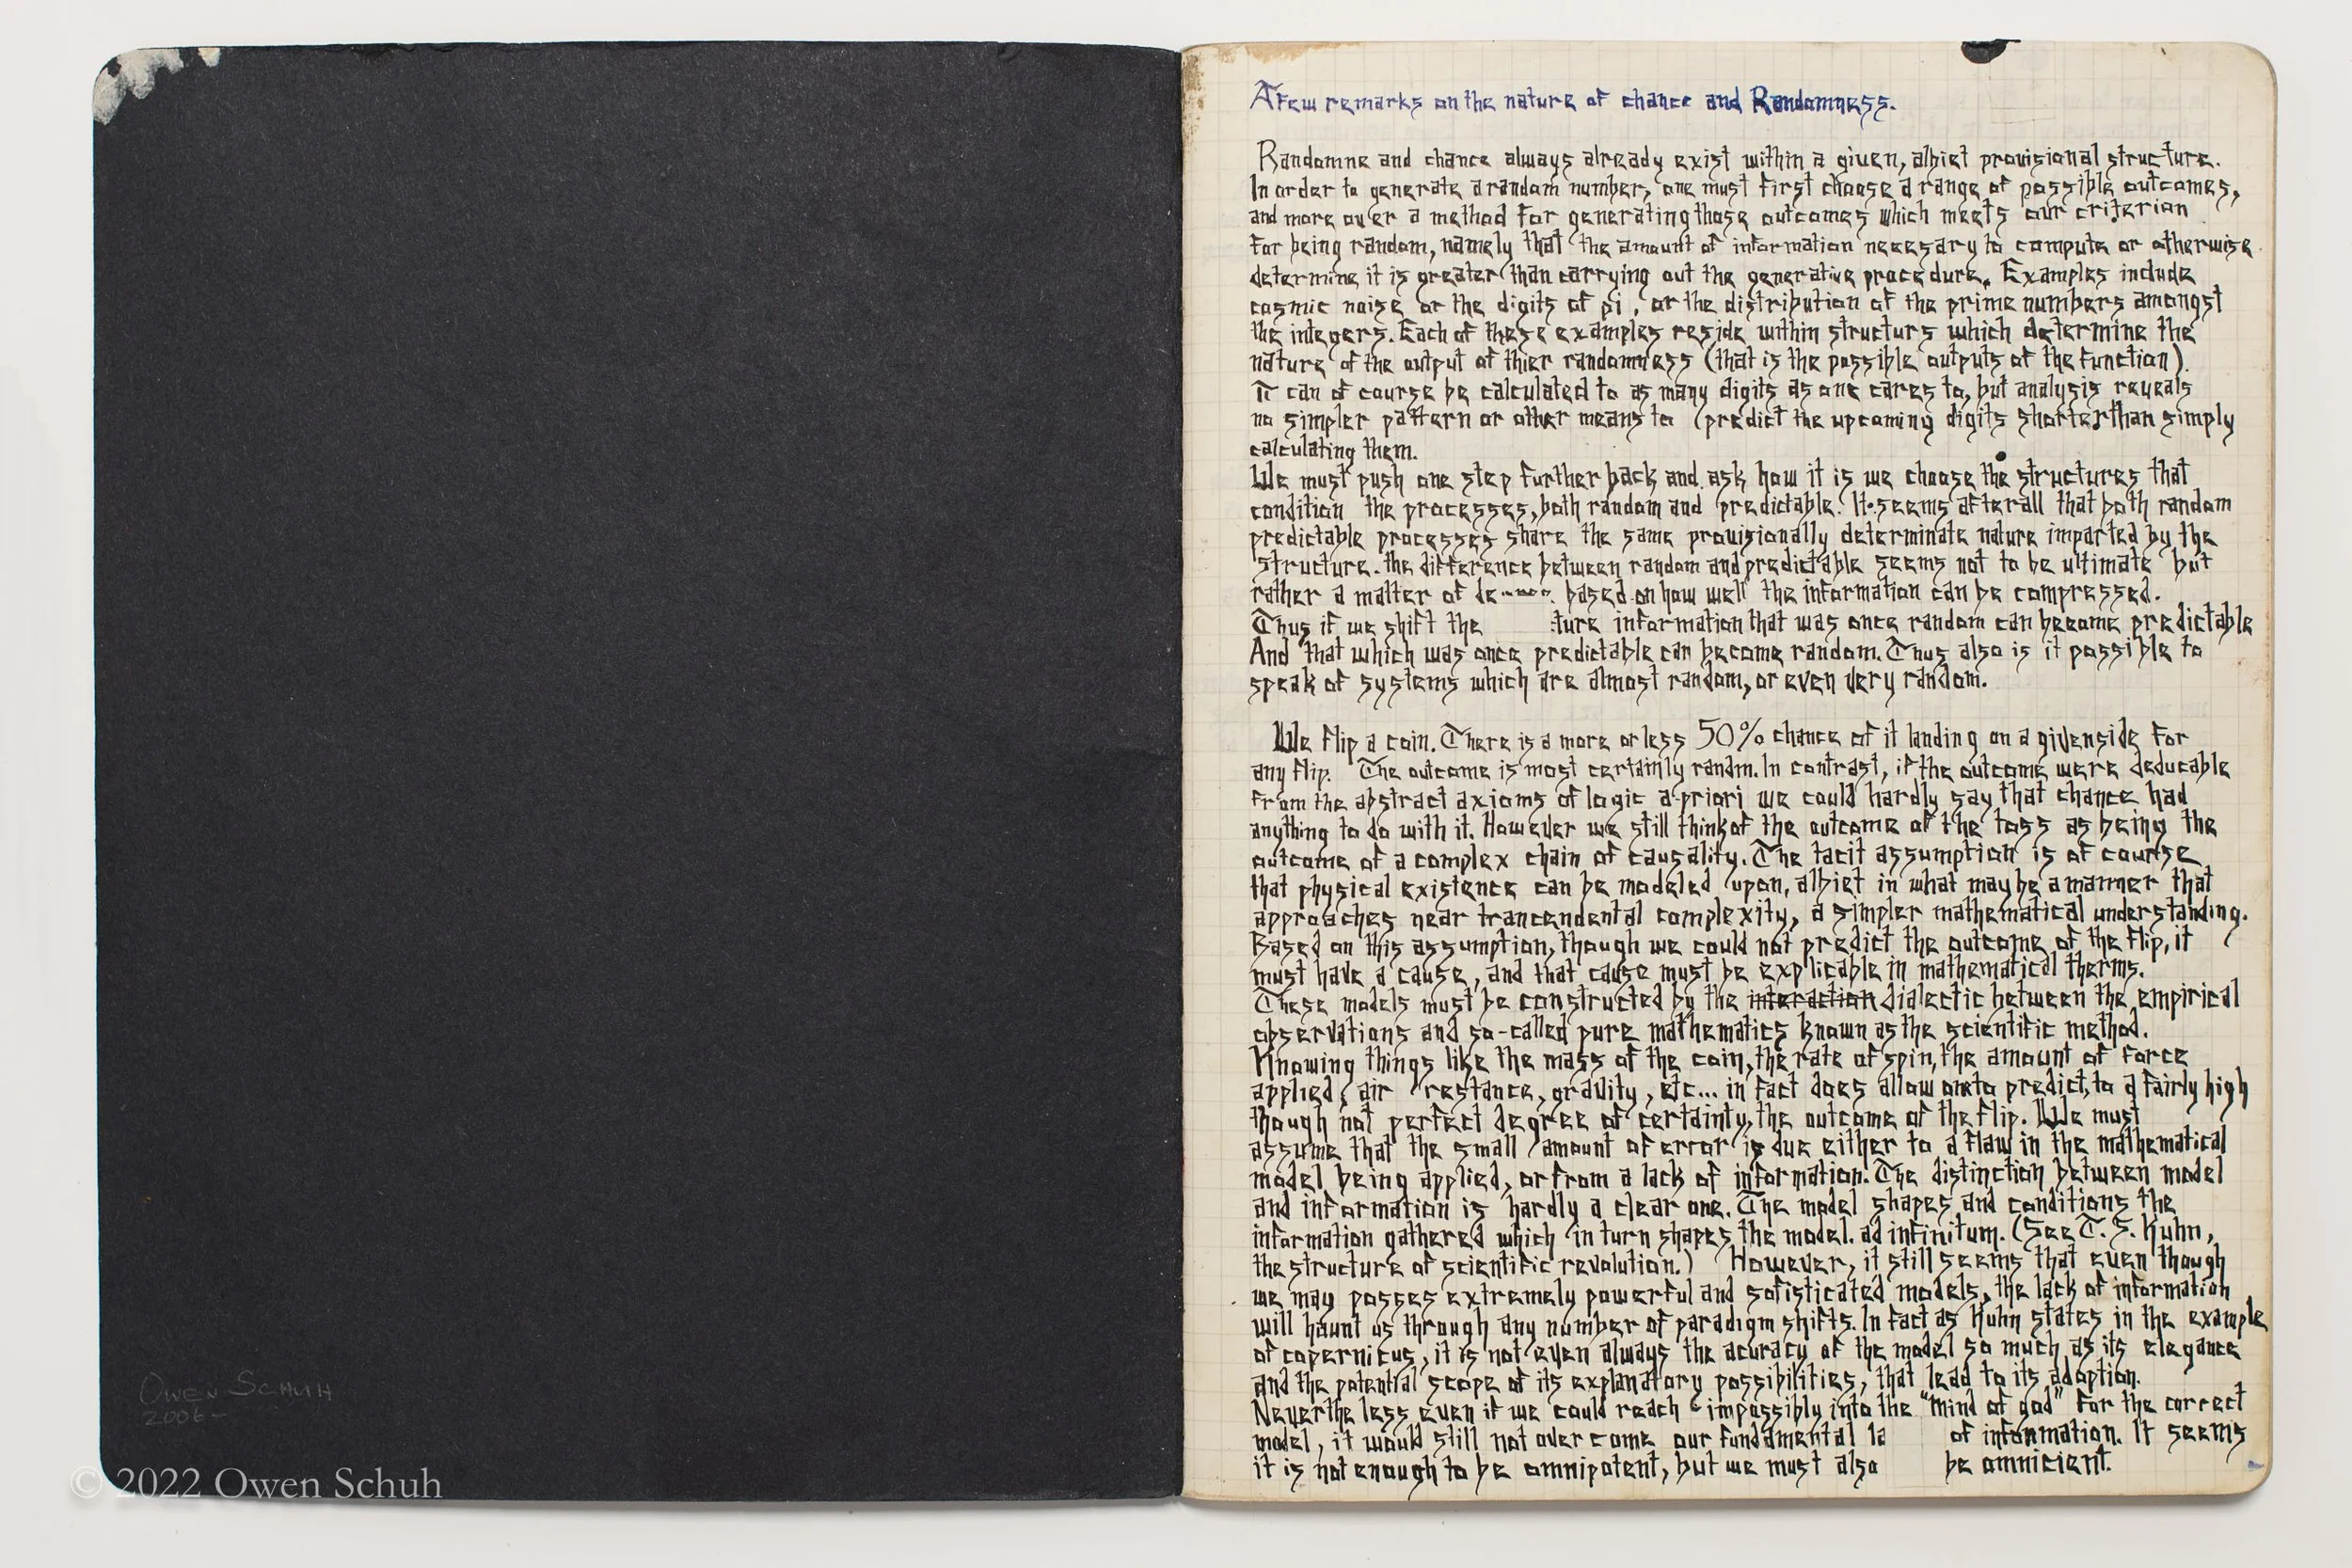 OWEN SCHUH
2006-
© 2022 Owen Schuh
A few remarks on the nature of chance and Randomness.
Randomne and chance always already exist within a given, albiet provisional structure.
In order to generate a random number, one must first choose a range of possible outcomes,
and more over a method for generating those outcomes which meets our criterion
for being random, namely that the amount of information necessary to compute or otherwise
determine it is greater than carrying out the generative procedure. Examples include
cosmic noise or the digits of pi, or the distribution of the prime numbers amongst
the integers. Each of these examples reside within structurs which determine the
nature of the output of thier randomness (that is the possible outputs of the function).
π can of course be calculated to as many digits as one cares to, but analysis reveals
no simpler pattern or other means to predict the upcoming digits shorter than simply
calculating them.
We must push one step further back and ask how it is we choose the structures that
condition the processes, both random and predictable. It seems after all that both random
predictable processes share the same provisionally determinate nature imparted by the
structure. the difference between random and predictable seems not to be ultimate but
rather a matter of based on how well the information can be compressed.
Thus if we shift the ture information that was once random can become predictable
And that which was once predictable can become random. Thus also is it possible to
speak of systems which are almost random, or even very random.
We flip a coin. There is a more or less 50% chance of it landing on a given side for
any flip. The outcome is most certainly randm. In contrast, if the outcome were deducable
from the abstract axioms of logic a-priori we could hardly say that chance had
anything to do with it. However we still think of the outcome of the toss as being the
outcome of a complex chain of causality. The tacit assumption is of course
that physical existence can be modeled upon, albiet in what may be a manner that
approaches near trancendental complexity, a simpler mathematical understanding.
Based on this assumption, though we could not predict the outcome of the flip, it
must have a cause, and that cause must be explicable in mathematical therms.
These models must be constructed by the interaction dialectic between the empirical
observations and so-called pure mathematics known as the scientific method.
Knowing things like the mass of the coin, the rate of spin, the amount of force
applied, air restance, gravity, etc... in fact does allow one to predict, to a fairly high
though not perfect degree of certainty, the outcome of the flip. We must
assume that the small amount of error is due either to a flaw in the mathematical
model being applied, or from a lack of information. The distinction between model
and information is hardly a clear one. The model shapes and conditions the
information gathered which in turn shapes the model. ad infinitum. (See T. S. Kuhn,
the structure of scientific revolution.) However, it still seems that even though
we may posses extremely powerful and sofisticated models, the lack of information
will haunt us through any number of paradigm shifts. In fact as Kuhn states in the example
of copernicus, it is not even always the acuracy of the model so much as its elegance
and the potential scope of its explanatory possibilities, that lead to its adoption.
Never the less even if we could reach impossibly into the "mind of god" for the correct
model, it would still not over come our fundamental la of information. It seems
it is not enough to be omnipotent, but we must also be omnicient.